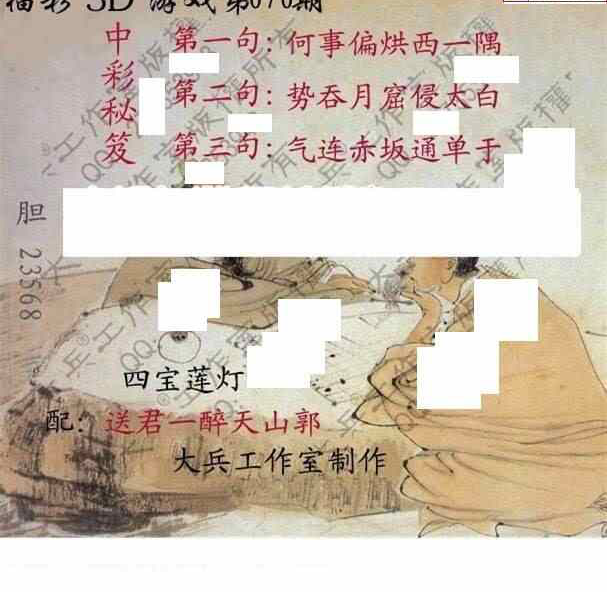 福彩3D游戏第070期
中彩秘笈
第一句：何事偏烘西一隅
第二句：势吞月窟侵太白
第三句：气连赤坂通单于
胆 23568
四宝莲灯
配：送君一醉天山郭
大兵工作室制作